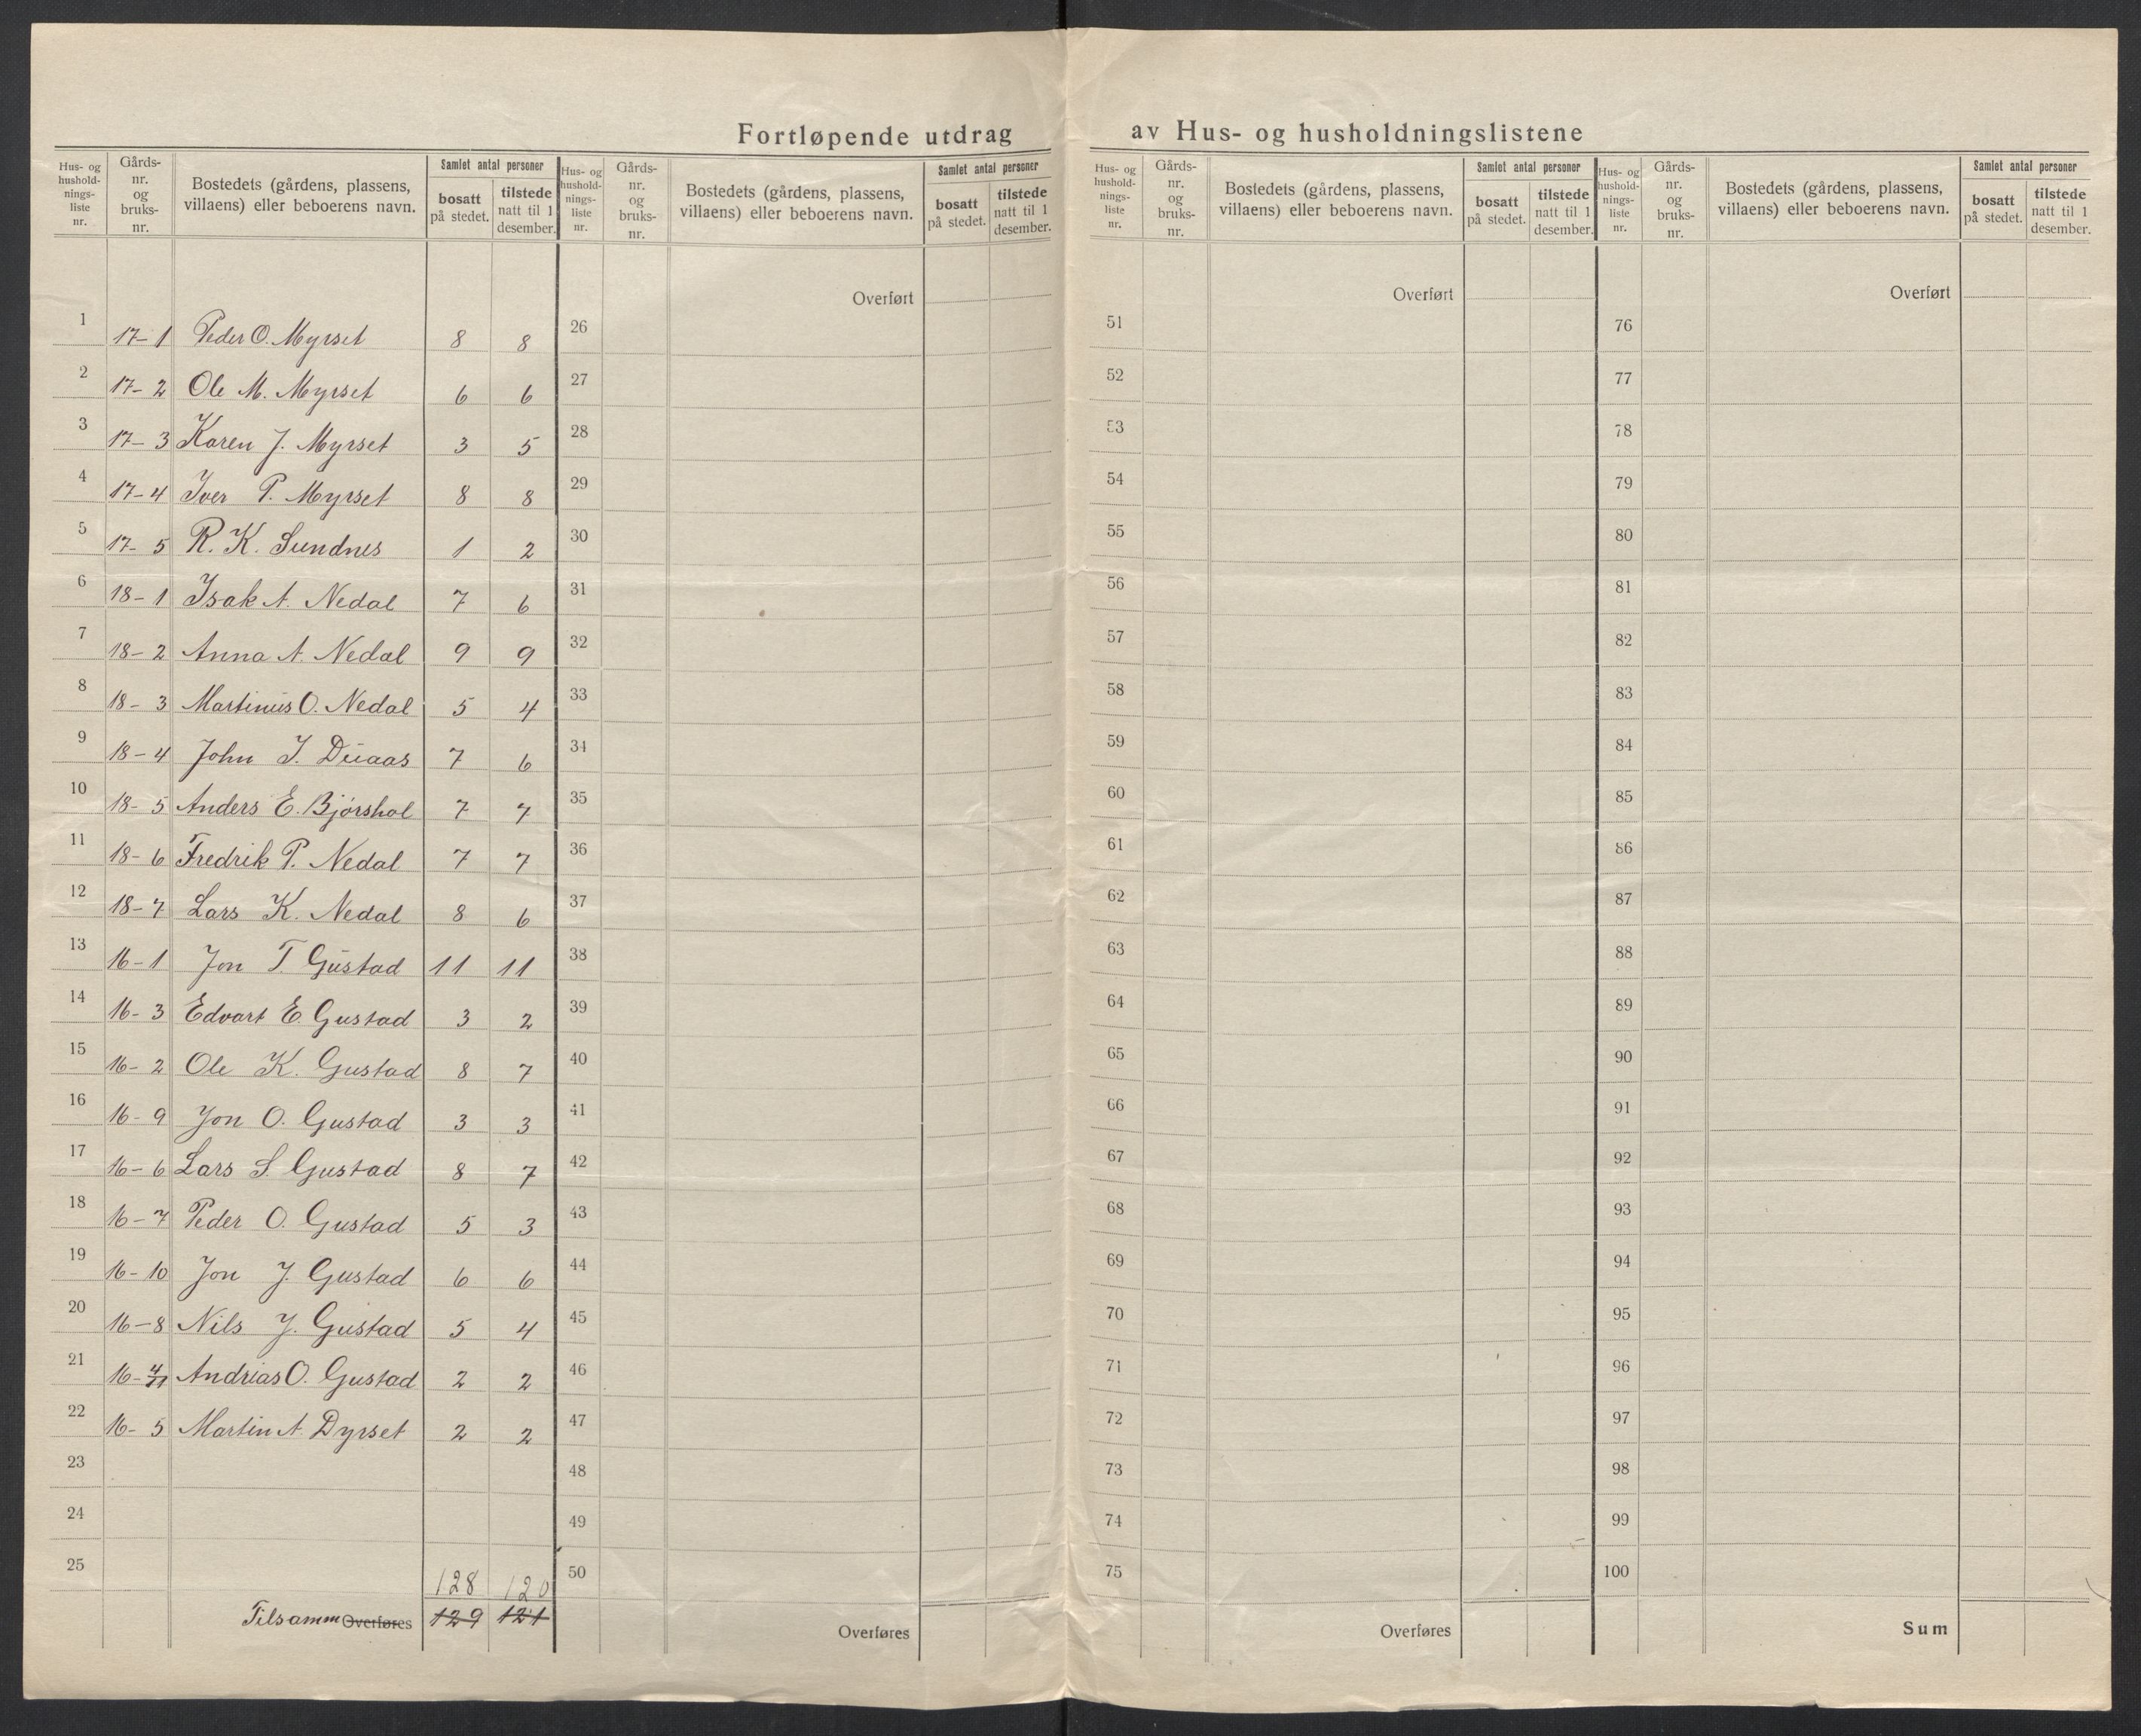 Fortløpende utdrag av Hus- og husholdningslistene
Hus- og hushold-nings-liste nr. | Gårds-nr. og bruks-nr. | Bostedets (gårdens, plassens, villaens) eller beboerens navn. | Samlet antal personer | bosatt på stedet. | tilstede natt til 1 desember.
1 17-1 Peder O. Myrset 8 8
2 17-2 Ole M. Myrset 6 6
3 17-3 Karen J. Myrset 3 5
4 17-4 Iver P. Myrset 8 8
5 17-5 R. K. Sundnes 1 2
6 18-1 Isak A. Nedal 7 6
7 18-2 Anna A. Nedal 9 9
8 18-3 Martinus O. Nedal 5 4
9 18-4 John I. Duaas 7 6
10 18-5 Anders E. Bjørshol 7 7
11 18-6 Fredrik P. Nedal 7 7
12 18-7 Lars K. Nedal 8 6
13 16-1 Jon T. Gustad 11 11
14 16-3 Edvart E. Gustad 3 2
15 16-2 Ole K. Gustad 8 7
16 16-9 Jon O. Gustad 3 3
17 16-6 Lars S. Gustad 8 7
18 16-7 Peder O. Gustad 5 3
19 16-10 Jon J. Gustad 6 6
20 16-8 Nils J. Gustad 5 4
21 16-4/11 Andrias O. Gustad 2 2
22 16-5 Martin A Dyrset 2 2
23
24
25
128 120
Tilsamm Overføres 129 121
Hus- og hushold-nings-liste nr. | Gårds-nr. og bruks-nr. | Bostedets (gårdens, plassens, villaens) eller beboerens navn. | Samlet antal personer | bosatt på stedet. | tilstede natt til 1 desember.
Overført
26
27
28
29
30
31
32
33
34
35
36
37
38
39
40
41
42
43
44
45
46
47
48
49
50
Overføres
Hus- og hushold-nings-liste nr. | Gårds-nr. og bruks-nr. | Bostedets (gårdens, plassens, villaens) eller beboerens navn. | Samlet antal personer | bosatt på stedet. | tilstede natt til 1 desember.
Overført
51
52
53
54
55
56
57
58
59
60
61
62
63
64
65
66
67
68
69
70
71
72
73
74
75
Overføres
Hus- og hushold-nings-liste nr. | Gårds-nr. og bruks-nr. | Bostedets (gårdens, plassens, villaens) eller beboerens navn. | Samlet antal personer | bosatt på stedet. | tilstede natt til 1 desember.
Overført
76
77
78
79
80
81
82
83
84
85
86
87
88
89
90
91
92
93
94
95
96
97
98
99
100
Sum